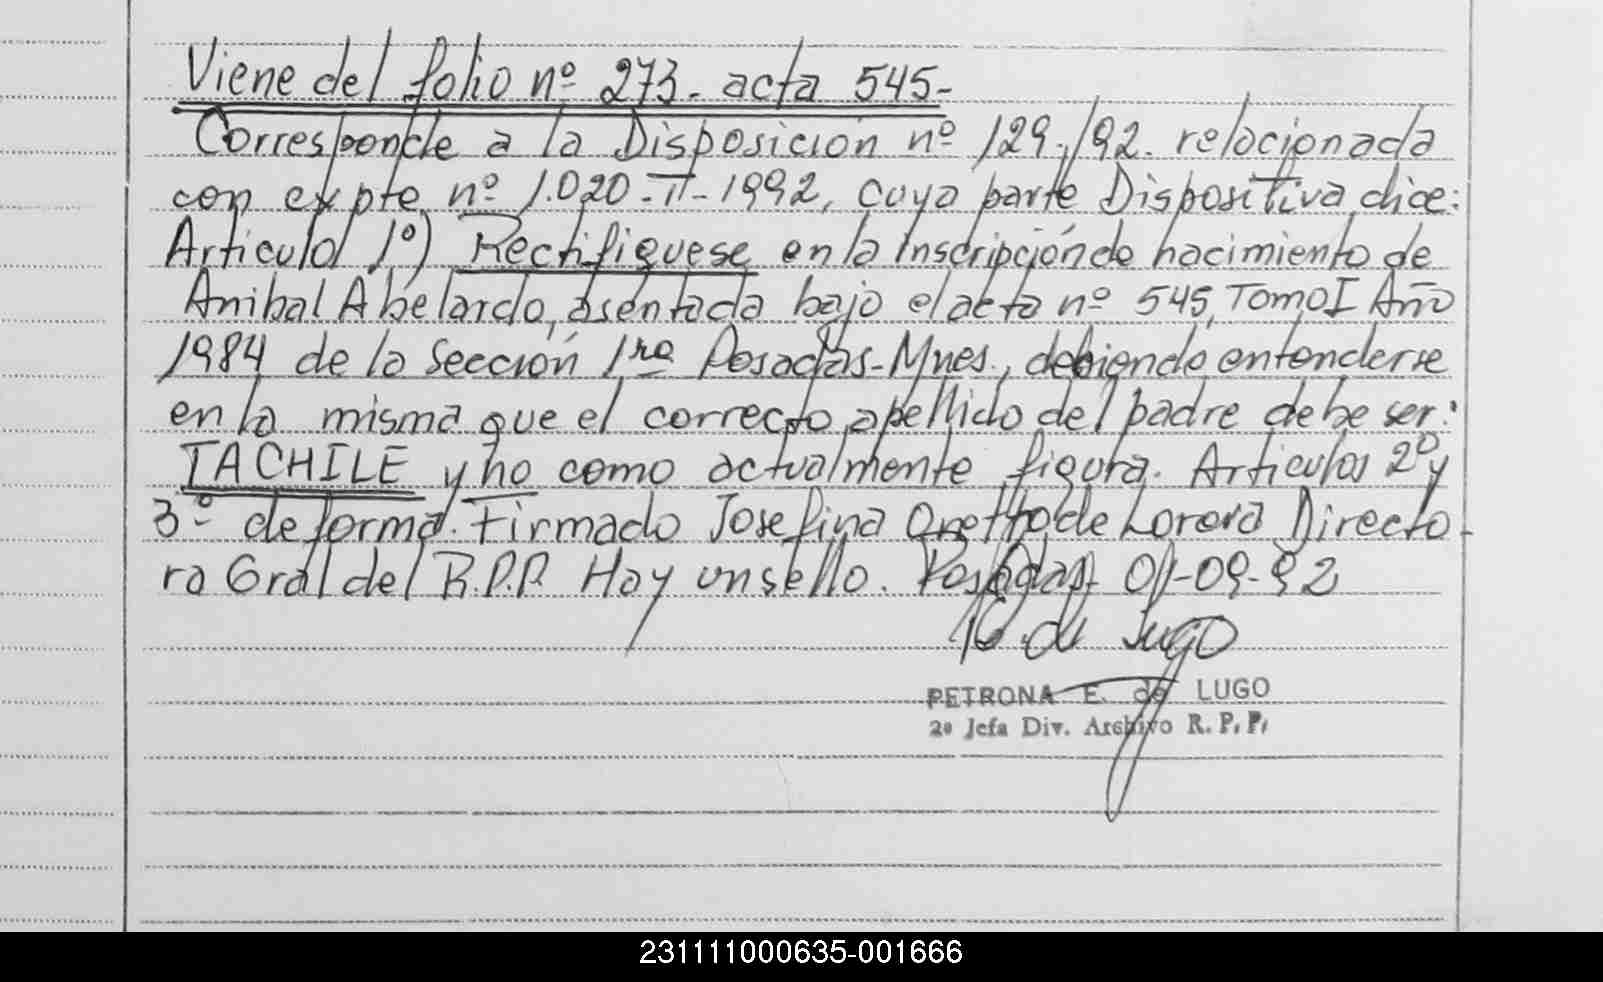 Viene del folio nº 273- acta 545-
Corresponde a la Disposición nº 129./92. relacionada
con expte nº 1.020-II-1992, cuya parte Dispositiva dice:
Articulo 1º) Rectifiquese en la Inscripción de nacimiento de
Anibal Abelardo, asentada bajo el acta nº 545, Tomo I Año
1984 de la Sección 1ra Posadas-Mnes., debiendo entenderse
en la misma que el correcto apellido del padre debe ser:
TACHILE y no como actualmente figura. Articulos 2º y
3º de forma. Firmado Josefina de Directo-
ra Gral del R.P.P. Hay un sello. Posadas 01-09-92
de Lugo
PETRONA E. de LUGO
2º Jefa Div. Archivo R. P. P.
231111000635-001666